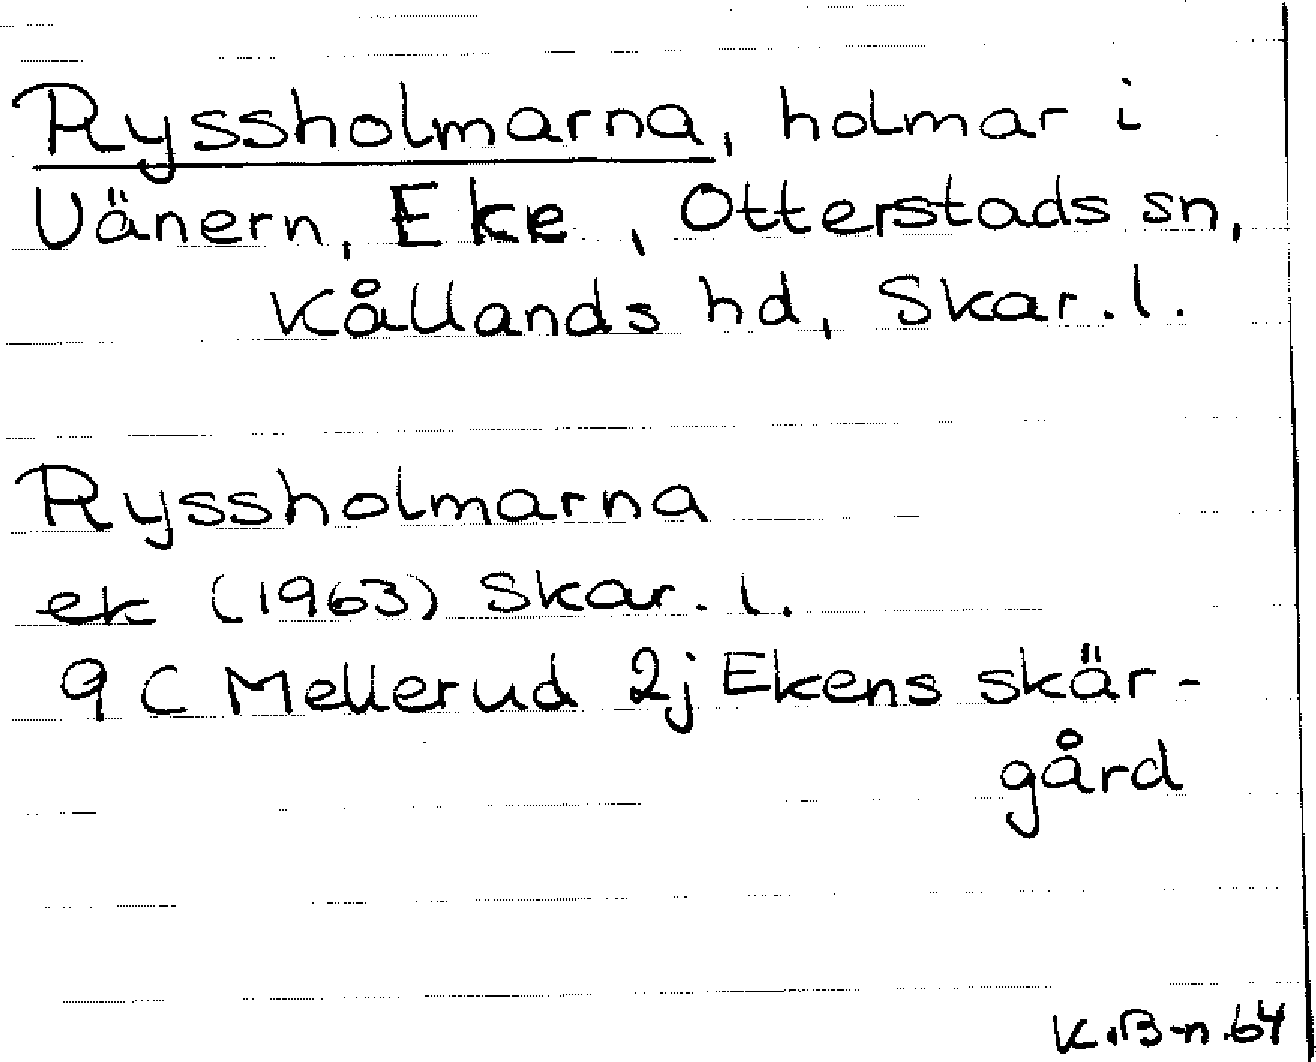 Ryssholmarna, holmar i
Vänern, Eke, Otterstads sn,
Kållands hd, Skar. l.
Ryssholmarna
ek (1963) Skar. l.
9 C Mellerud 2j Ekens skär-
gård
K.B-n.64